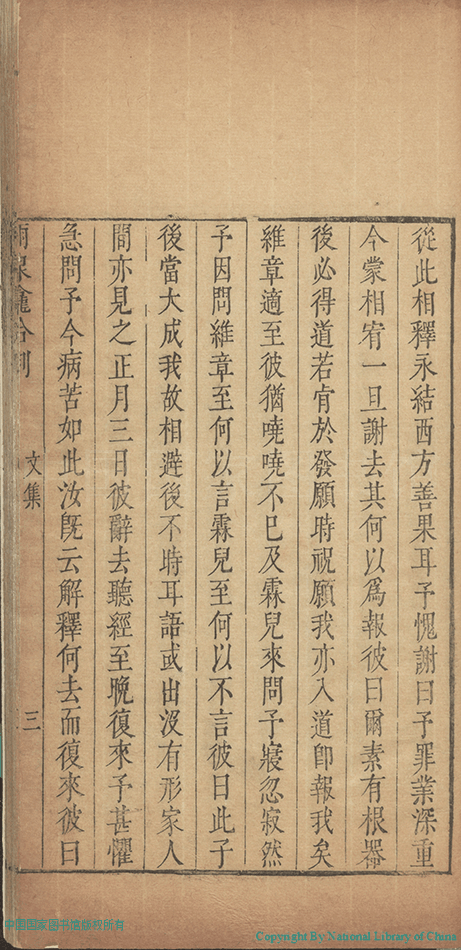 從此相釋永結西方善果耳予愧謝曰予罪業深重
今蒙相宥一旦謝去其何以爲報彼曰爾素有根器
後必得道若肯於發願時祝願我亦入道卽報我矣
維章適至彼猶嘵嘵不已及霖兒來問予寢忽寂然
予因問維章至何以言霖兒至何以不言彼曰此子
後當大成我故相避後不時耳語或出沒有形家人
間亦見之正月三日彼辭去聽經至晚復來予甚懼
急問予今病苦如此汝旣云解釋何去而復來彼曰
合刻 文集 三
中国国家图书馆版权所有
Copyright By National Library of China